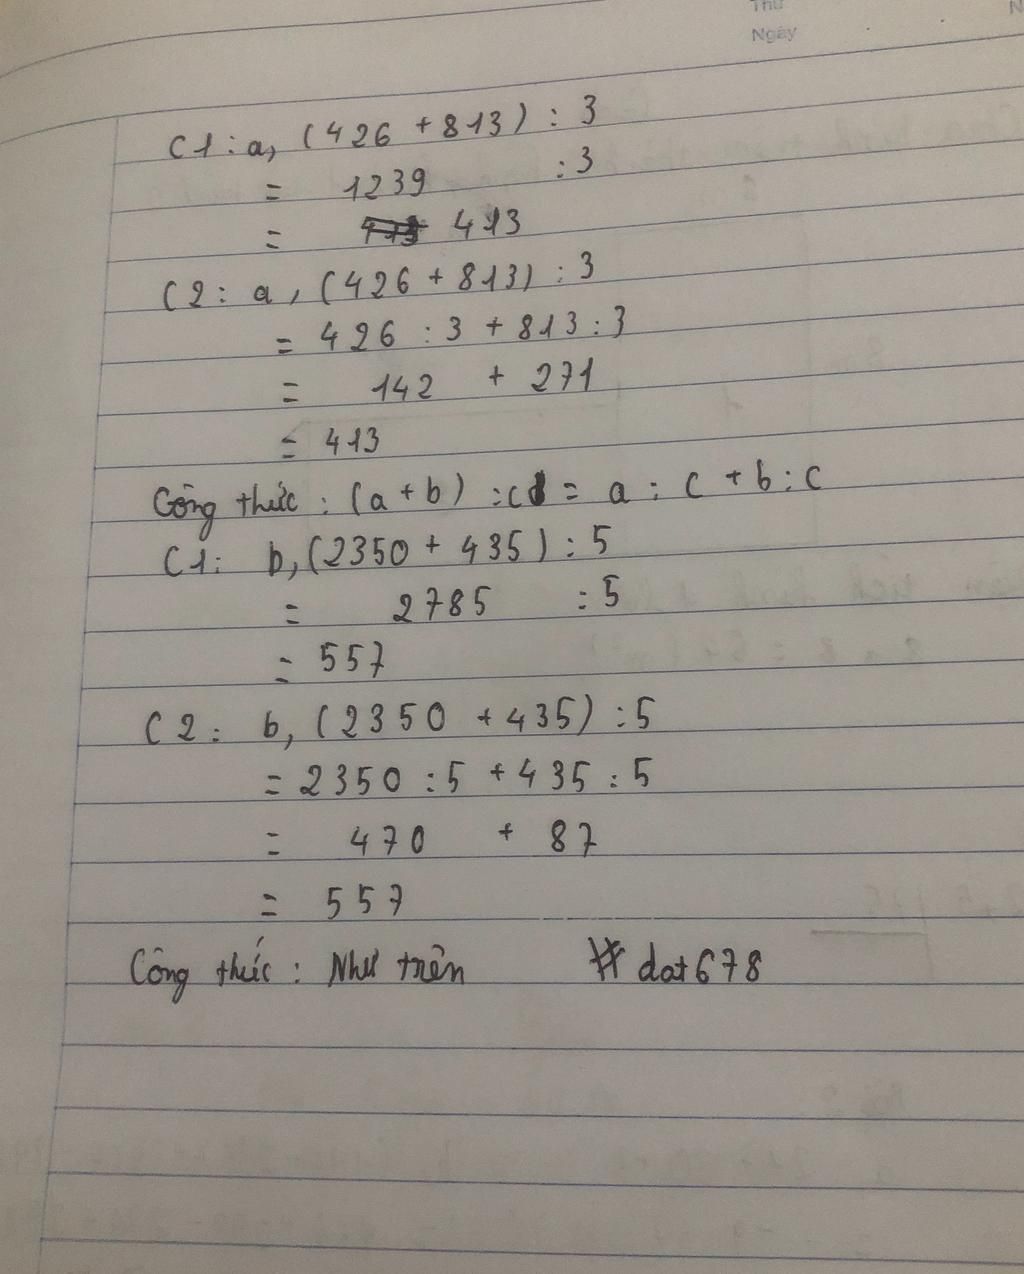 Thứ
Ngày
C1: a, (426 + 813) : 3
= 1239 : 3
= 413
C2: a, (426 + 813) : 3
= 426 : 3 + 813 : 3
= 142 + 271
= 413
Công thức : (a + b) : c = a : c + b : c
C1: b, (2350 + 435) : 5
= 2785 : 5
= 557
C2: b, (2350 + 435) : 5
= 2350 : 5 + 435 : 5
= 470 + 87
= 557
Công thức : Như trên # dat678